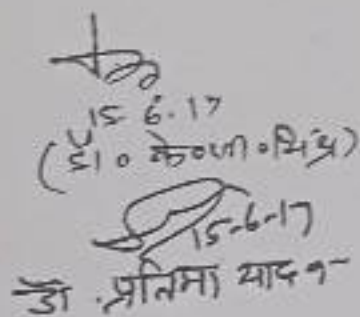 15.6.17
(डॉ० के०जी०मिश्र)
15-6-17
डॉ. प्रतिमा यादव